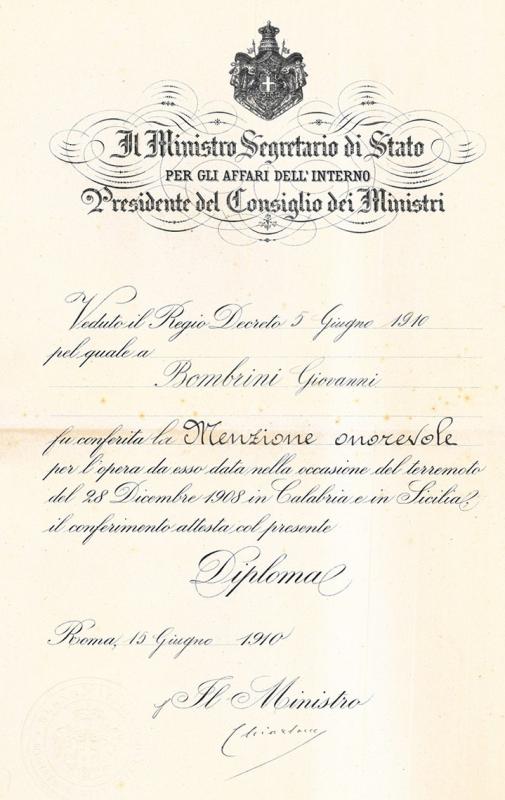 Il Ministro Segretario di Stato
PER GLI AFFARI DELL'INTERNO
Presidente del Consiglio dei Ministri
Veduto il Regio Decreto 5 Giugno 1910
pel quale a
Bombrini Giovanni
fu conferita la Menzione onorevole
per l'opera da esso data nella occasione del terremoto
del 28 Dicembre 1908 in Calabria e in Sicilia,
il conferimento attesta col presente
Diploma
Roma, 15 Giugno 1910
Il Ministro